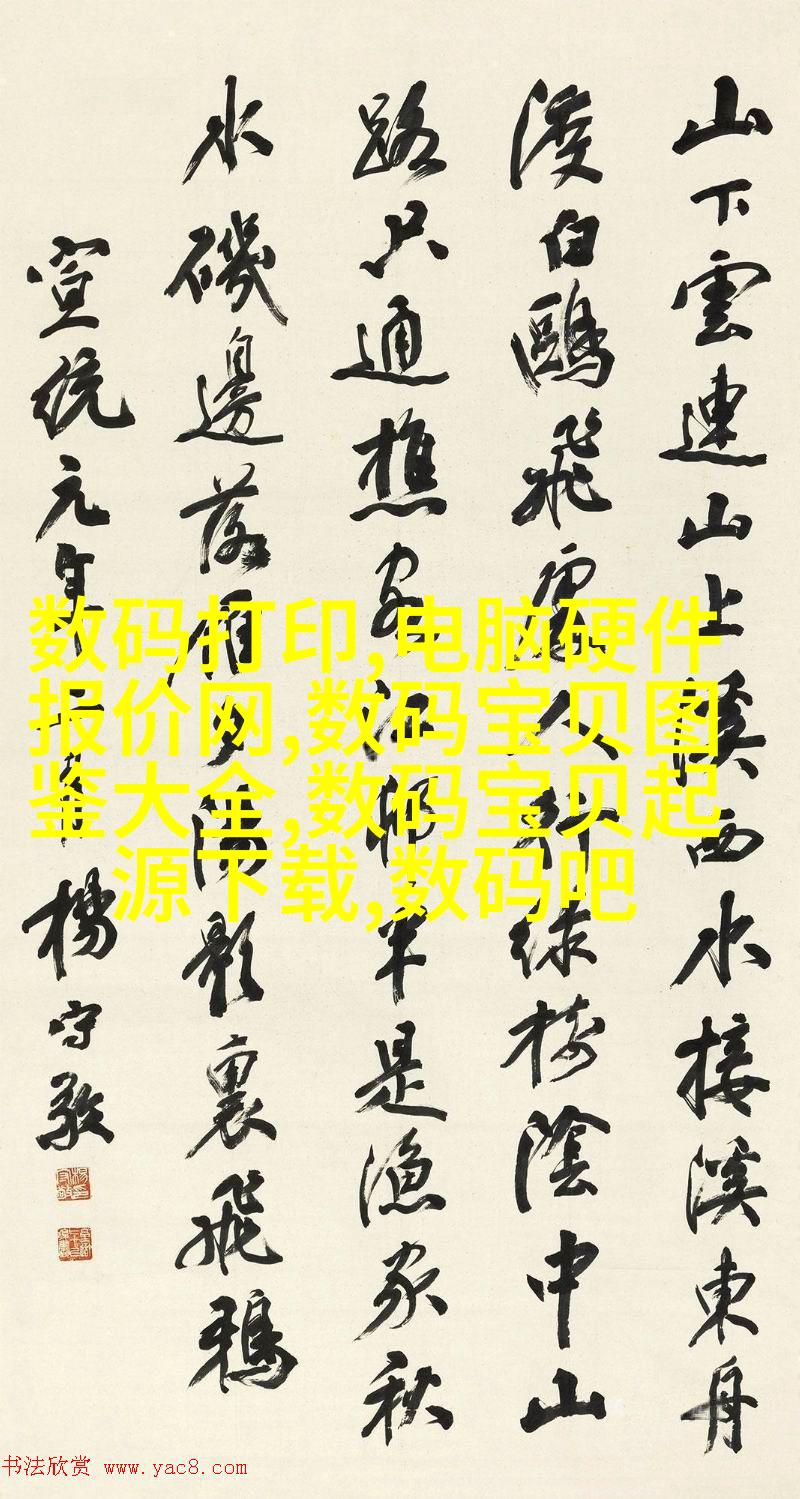 山下雲連山上溪西水接溪東舟
渡白鷗飛處人行綠樹陰中山
路只通樵客江半是漁家秋
水磯邊落雁夕陽影裏飛鴉
宣統元年 楊守敬
数码打印,电脑硬件
报价网,数码宝贝图
鉴大全,数码宝贝起
源下载,数码吧
书法欣赏 www.yac8.com